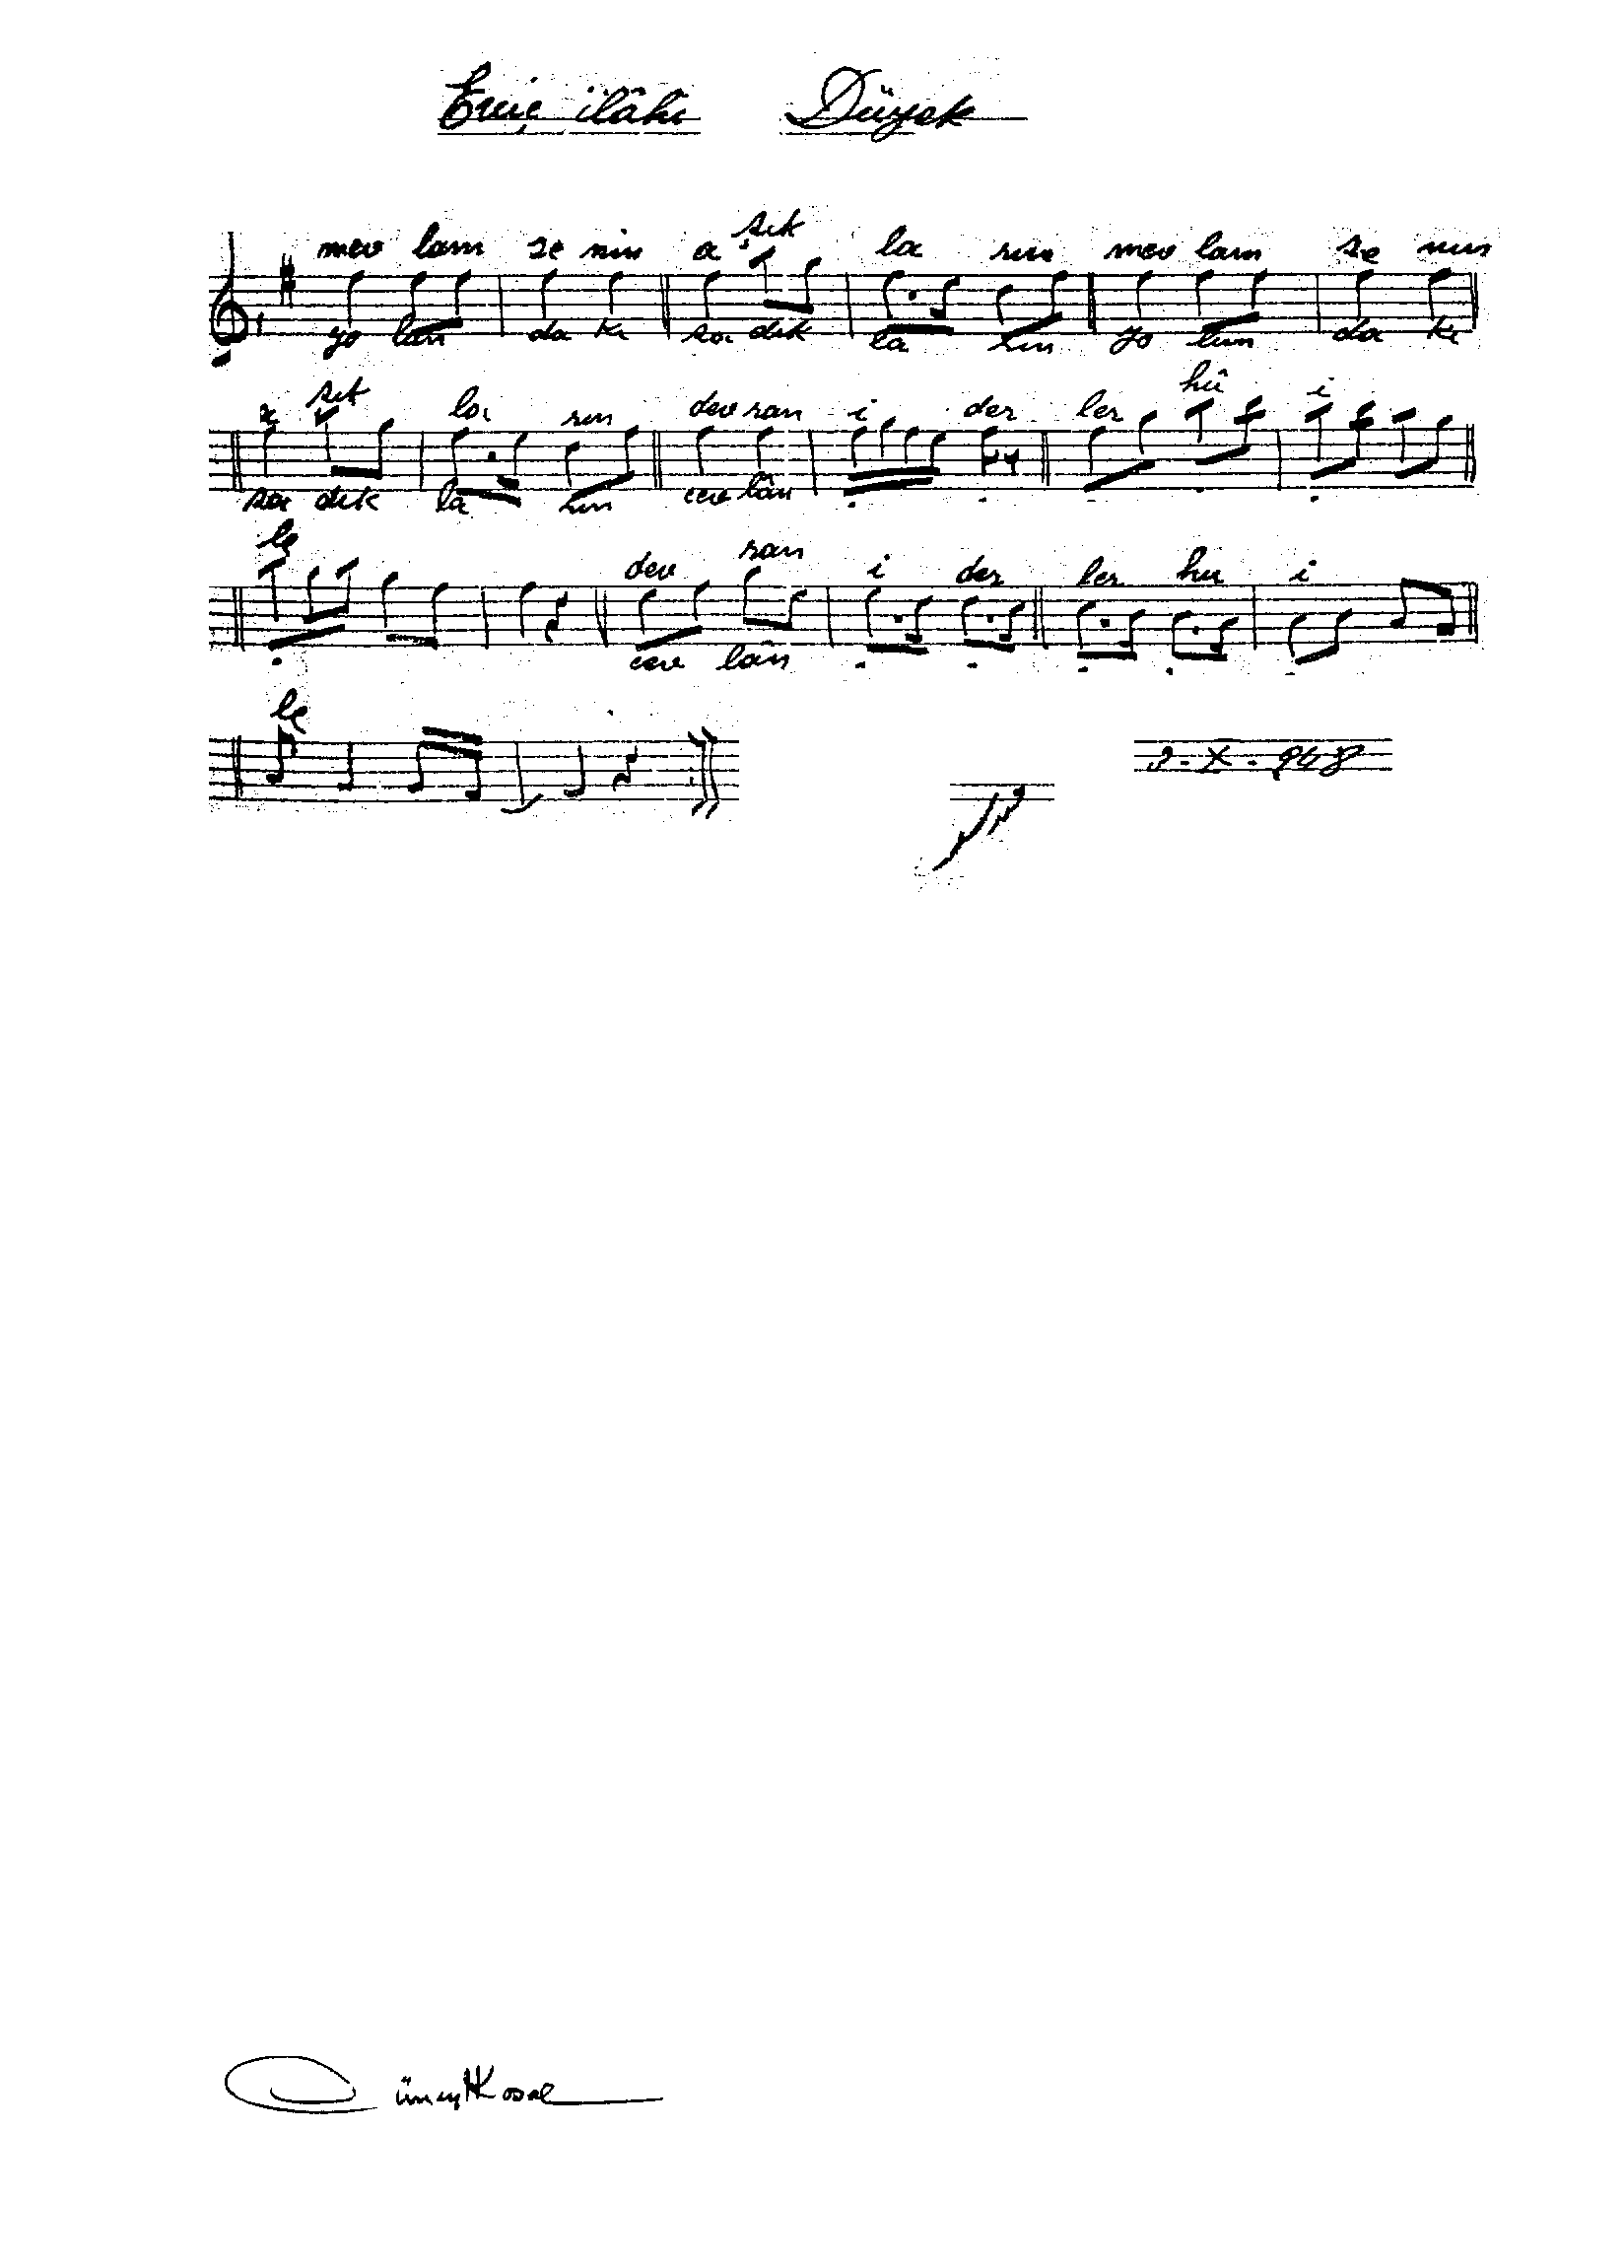 Eviç ilâhi Düyek
mev lam se nin a şık la rın mev lam se nin
yo lun da ki sa dık la rın yo lun da ki
a şık la rın dev ran i der ler hû i
sa dık la rın cev lân
le dev ran i der ler hu i
cev lân
le
3-X-948
Cüneyt Kosal